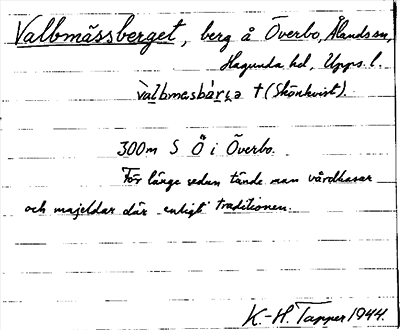 Valbmässberget, berg å Överbo, Ålands sn,
Hagunda hd, Upps. l.
300m S Ö i Överbo.
För länge sedan tände man vårdkasar
och majeldar där enligt traditionen.
K.-H. Tapper 1944.